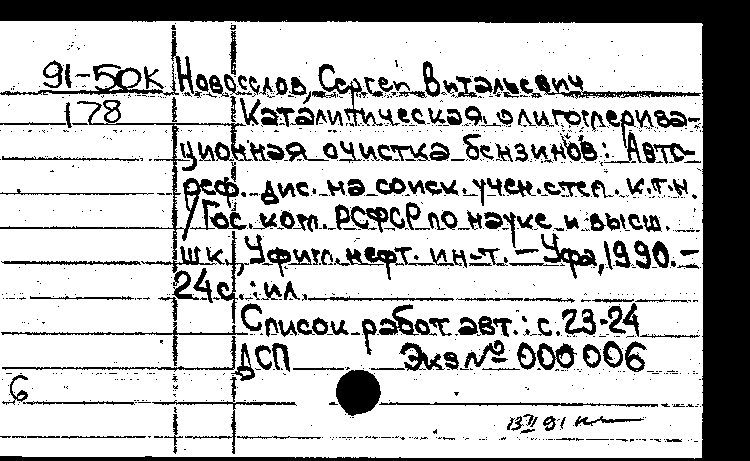 91-50К Новоселов, Сергей Витальевич
178 Каталитическая олигомериза-
ционная очистка бензинов: Авто-
реф. дис. на соиск. учен. степ. к.т.н.
/ Гос. ком. РСФСР по науке и высш.
шк., Уфим. нефт. ин-т. — Уфа, 1990. —
24 с. : ил.
Список работ авт.: с. 23-24
ДСП Экз № 000 006
6
91